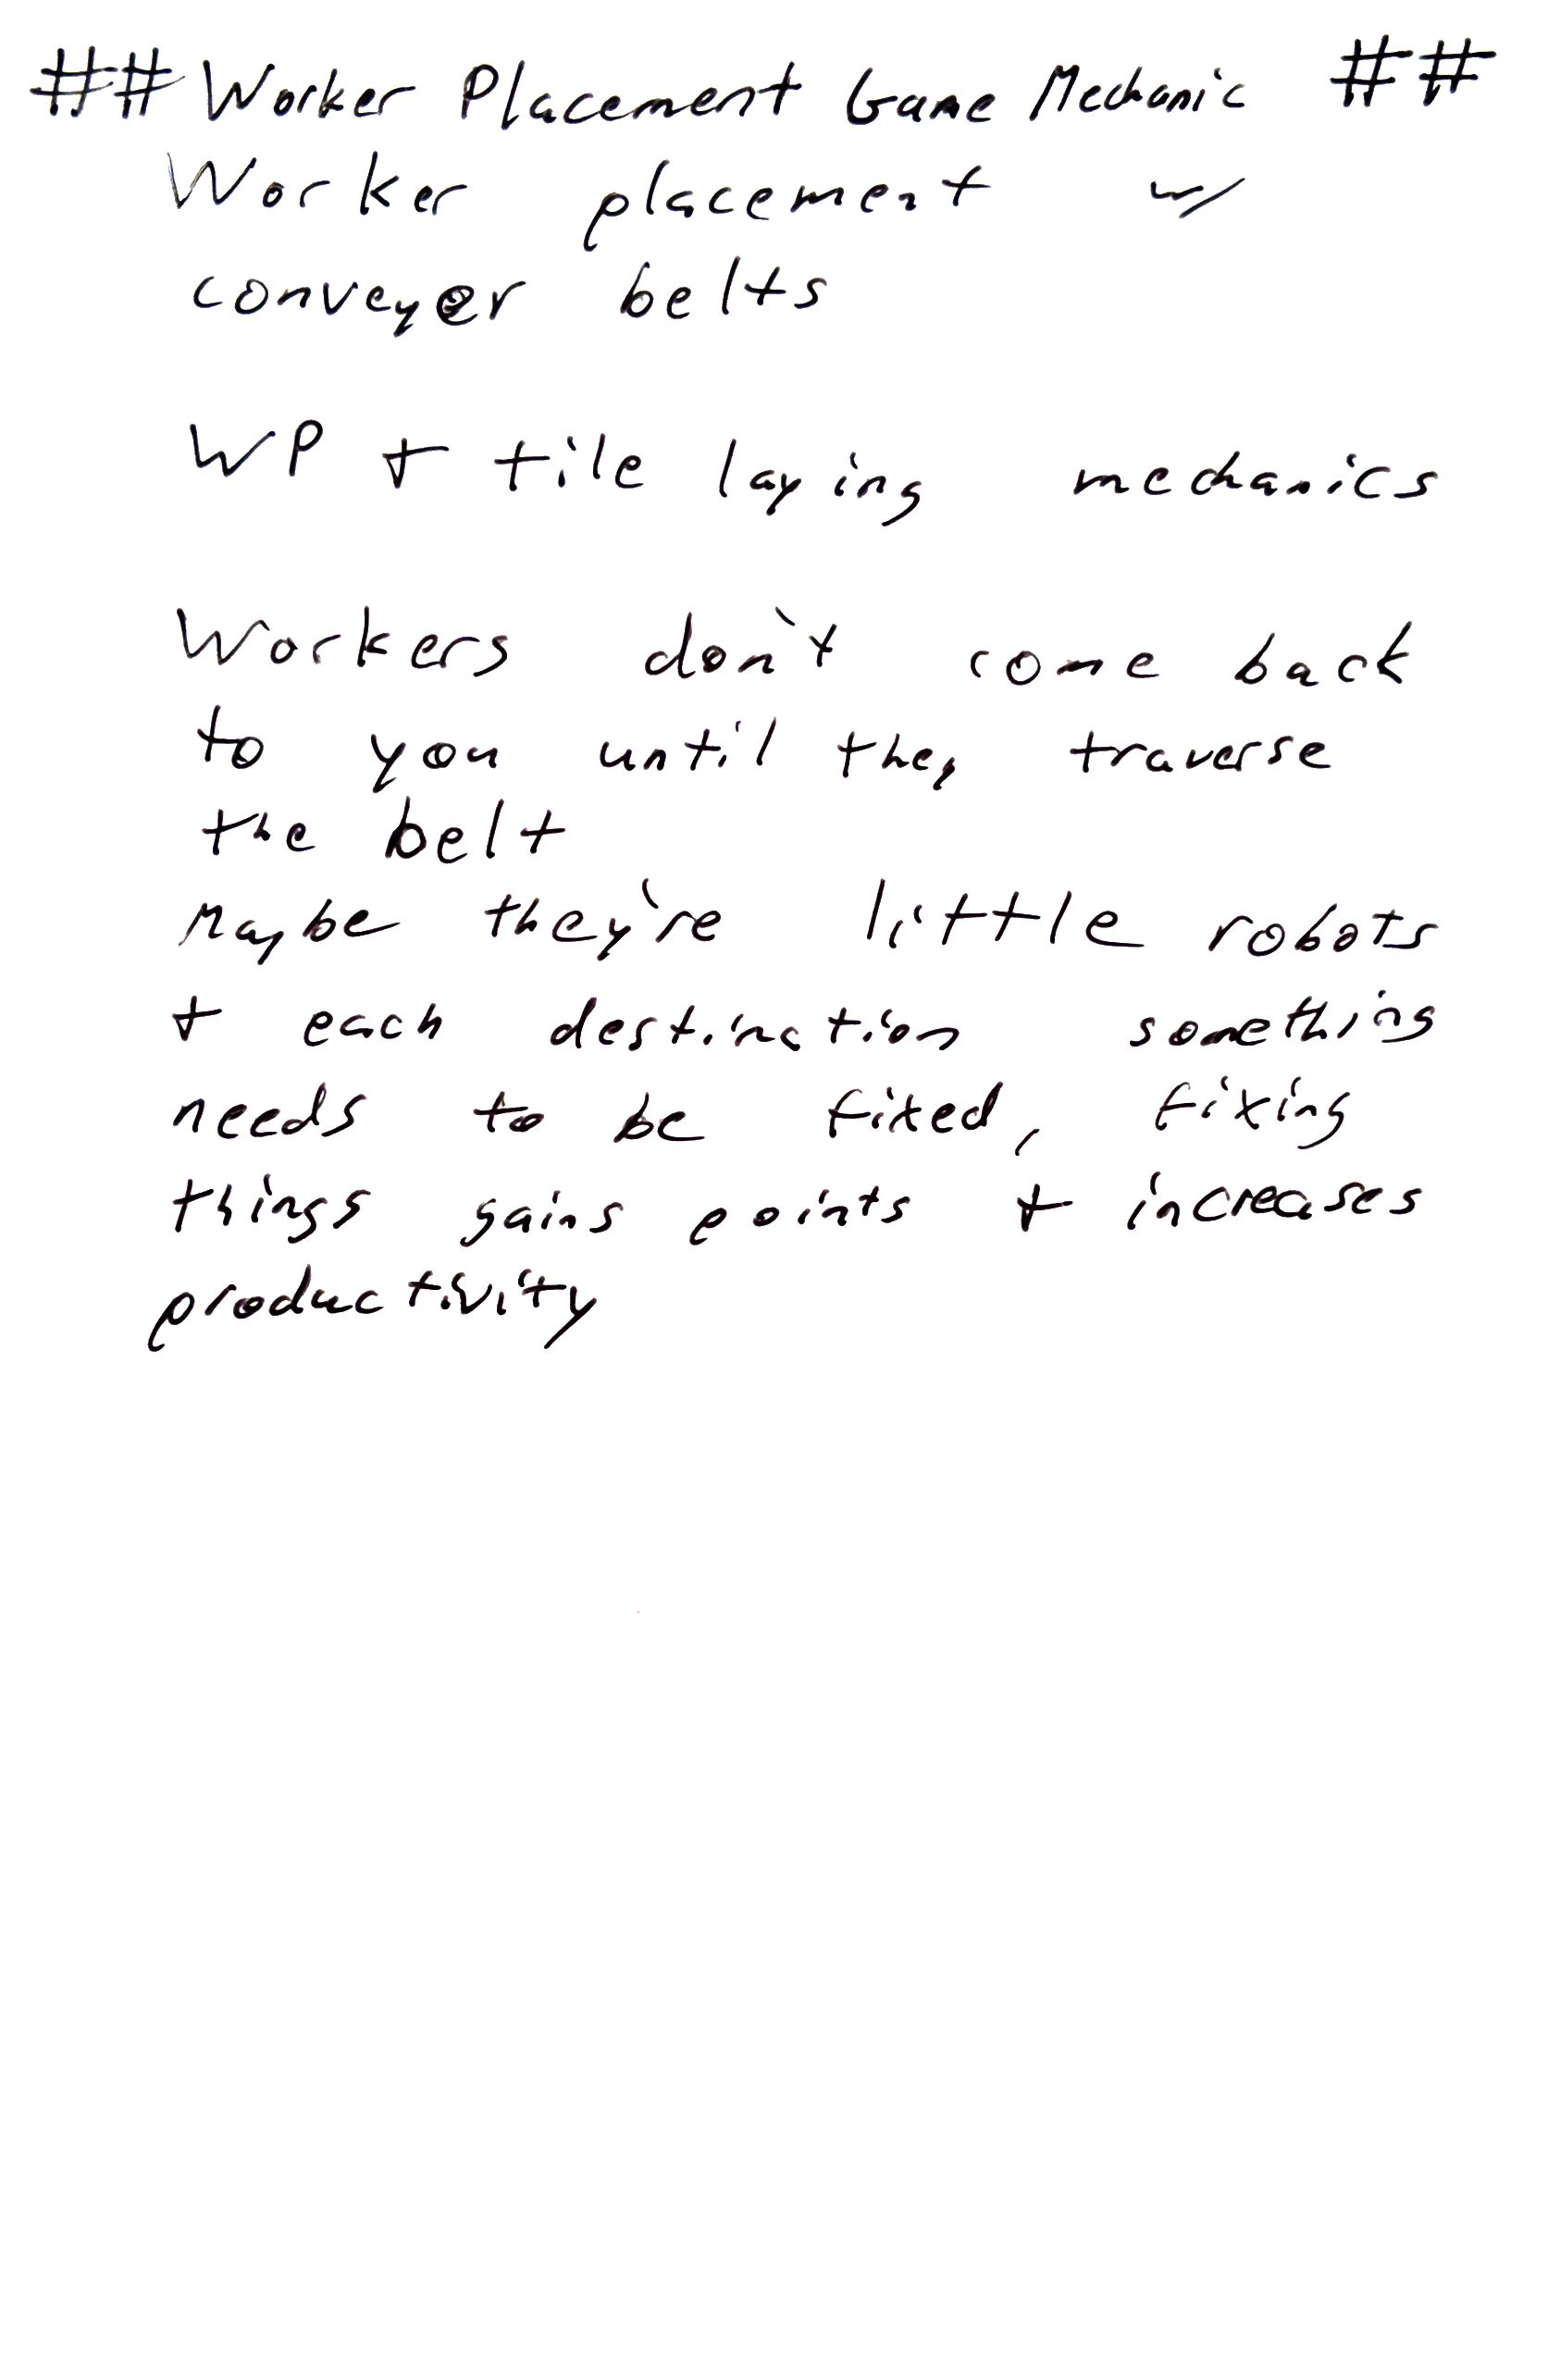 ## Worker Placement Game Mechanic ##
Worker placement w/
conveyer belts
WP + tile laying mechanics
Workers don't come back
to you until they traverse
the belt
Maybe they're little robots
+ each destination something
needs to be fixed, fixing
things gains points + increases
productivity